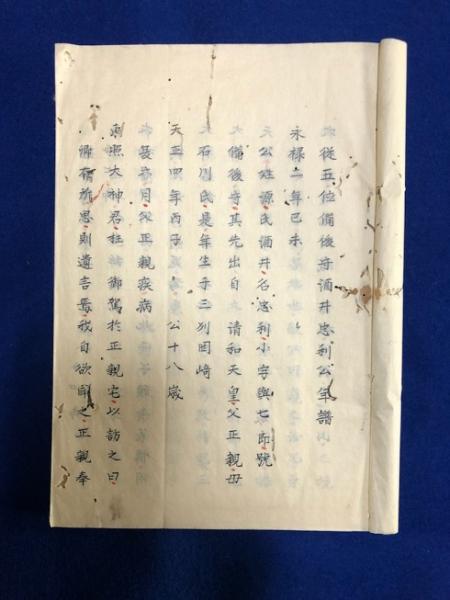 從五位備後守酒井忠利公年譜
永禄二年己未
公姓源氏酒井名忠利小字與七郎號
備後守其先出自清和天皇父正親母
石川氏是年生于三列岡崎
天正四年丙子 公十八歳
月父正親疾病
照大神君枉御駕於正親宅以訪之曰
卿有所思則遺言焉我自欲聞之正親奉